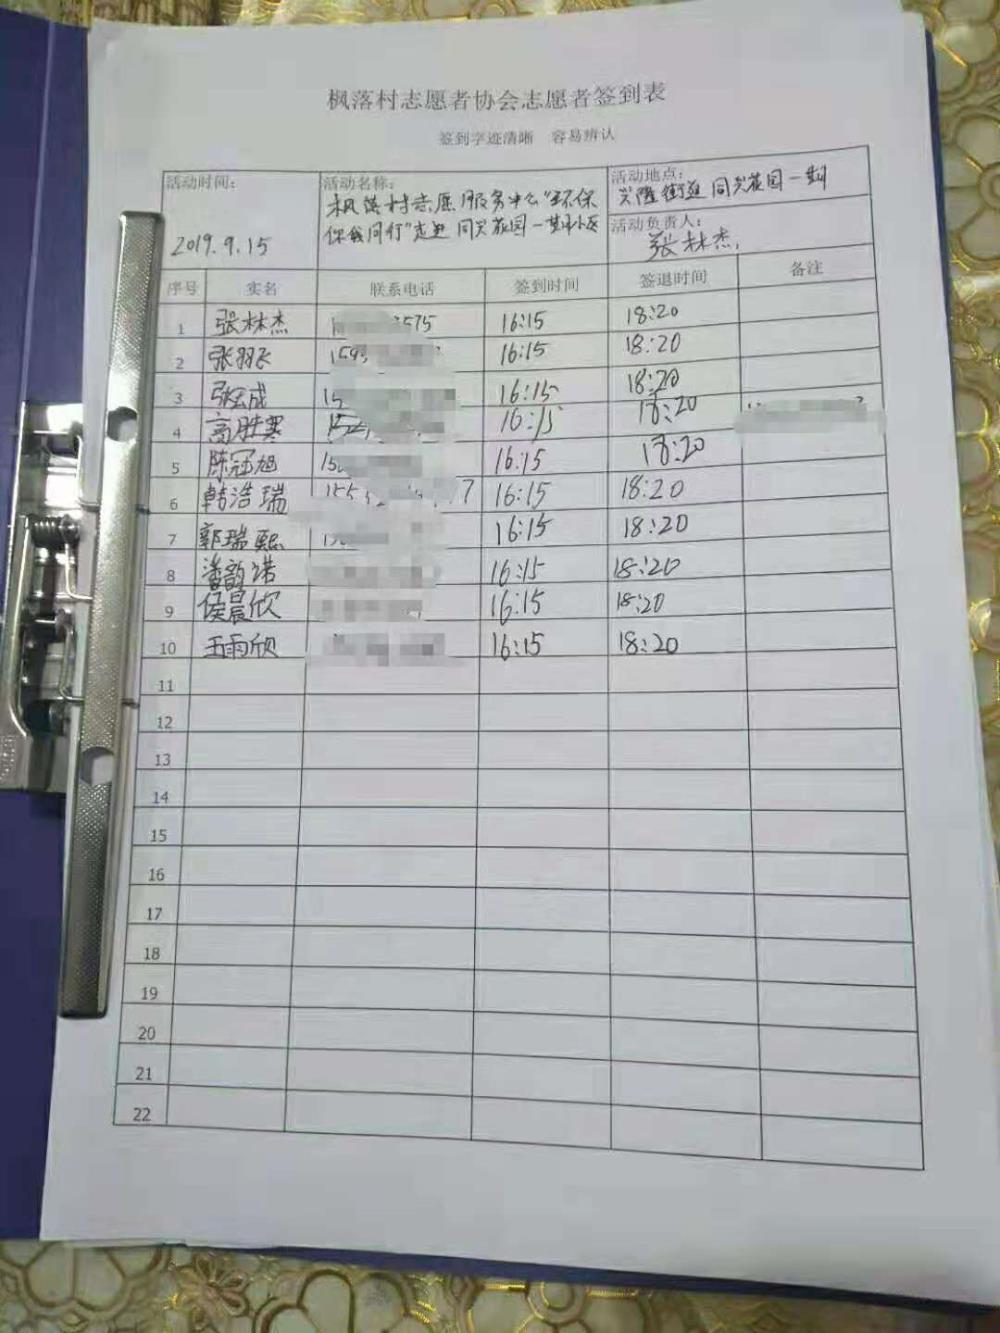 枫落村志愿者协会志愿者签到表
签到字迹清晰 容易辨认
活动时间：
2019.9.15
活动名称：
枫落村志愿服务中心"环保
你我同行"走进同兴花园一期小区
活动地点：
兴隆街道同兴花园一期
活动负责人：
张林杰
序号 实名 联系电话 签到时间 签退时间 备注
1 张林杰 1 3575 16:15 18:20
2 张羽飞 159 16:15 18:20
3 张 成 15 16:15 18:20
4 高胜寒 152 16:15 18:20
5 陈冠旭 150 16:15 18:20
6 韩浩瑞 155 7 16:15 18:20
7 郭瑞熙 16:15 18:20
8 潘韵诺 16:15 18:20
9 侯晨欣 16:15 18:20
10 王雨欣 16:15 18:20
11
12
13
14
15
16
17
18
19
20
21
22